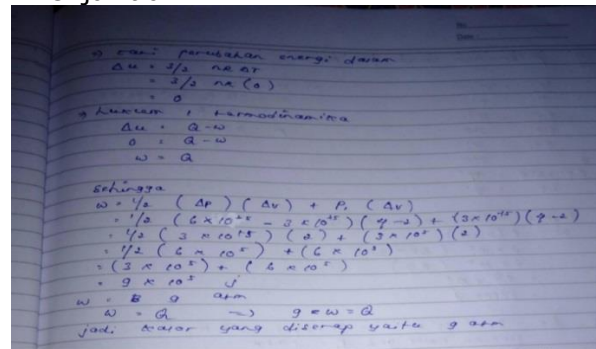 No.
Date.
> cari perubahan energi dalam
Δu = 3/2 nR ΔT
= 3/2 nR (0)
= 0
> Hukum 1 termodinamika
Δu = Q - w
0 = Q - w
w = Q
Sehingga
w = 1/2 (ΔP) (Δv) + P₁ (Δv)
= 1/2 (6 x 10^5 - 3 x 10^5) (4 - 2) + (3 x 10^5) (4 - 2)
= 1/2 (3 x 10^5) (2) + (3 x 10^5) (2)
= 1/2 (6 x 10^5) + (6 x 10^5)
= (3 x 10^5) + (6 x 10^5)
= 9 x 10^5 j
w = 9 atm
w = Q => 9 = w = Q
jadi kalor yang diserap yaitu 9 atm